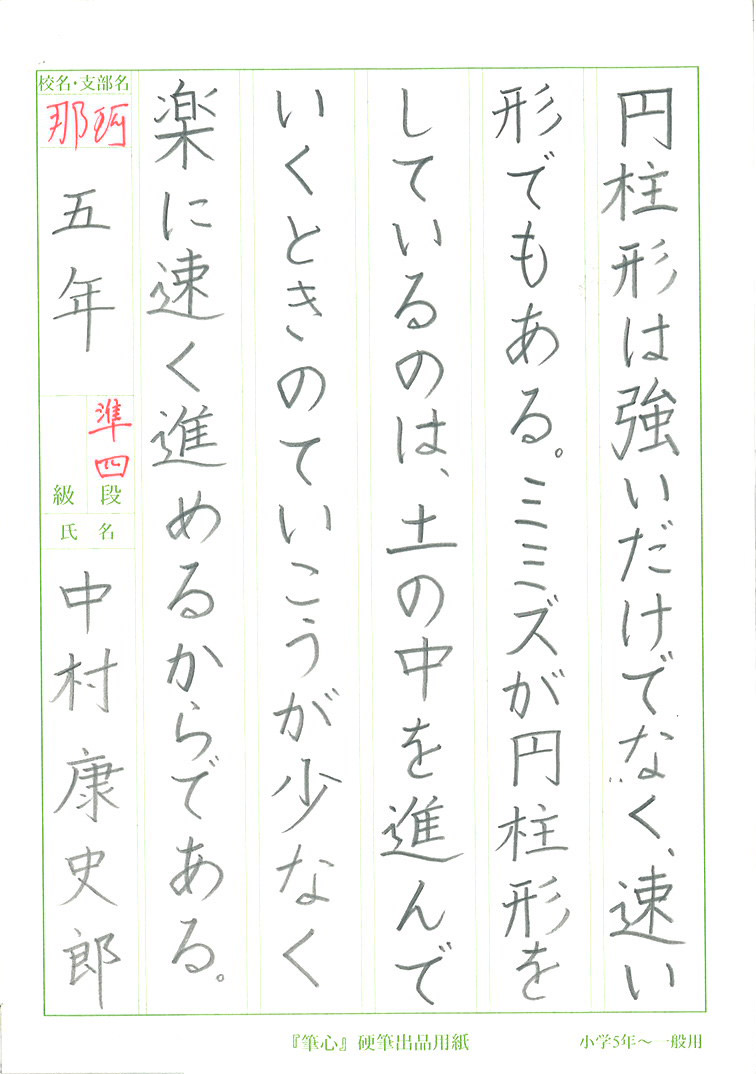 円柱形は強いだけでなく、速い
形でもある。ミミズが円柱形を
しているのは、土の中を進んで
いくときのていこうが少なく
楽に速く進めるからである。
校名・支部名
那珂
五年
準四
段
級
氏名
中村康史郎
『筆心』硬筆出品用紙
小学5年～一般用